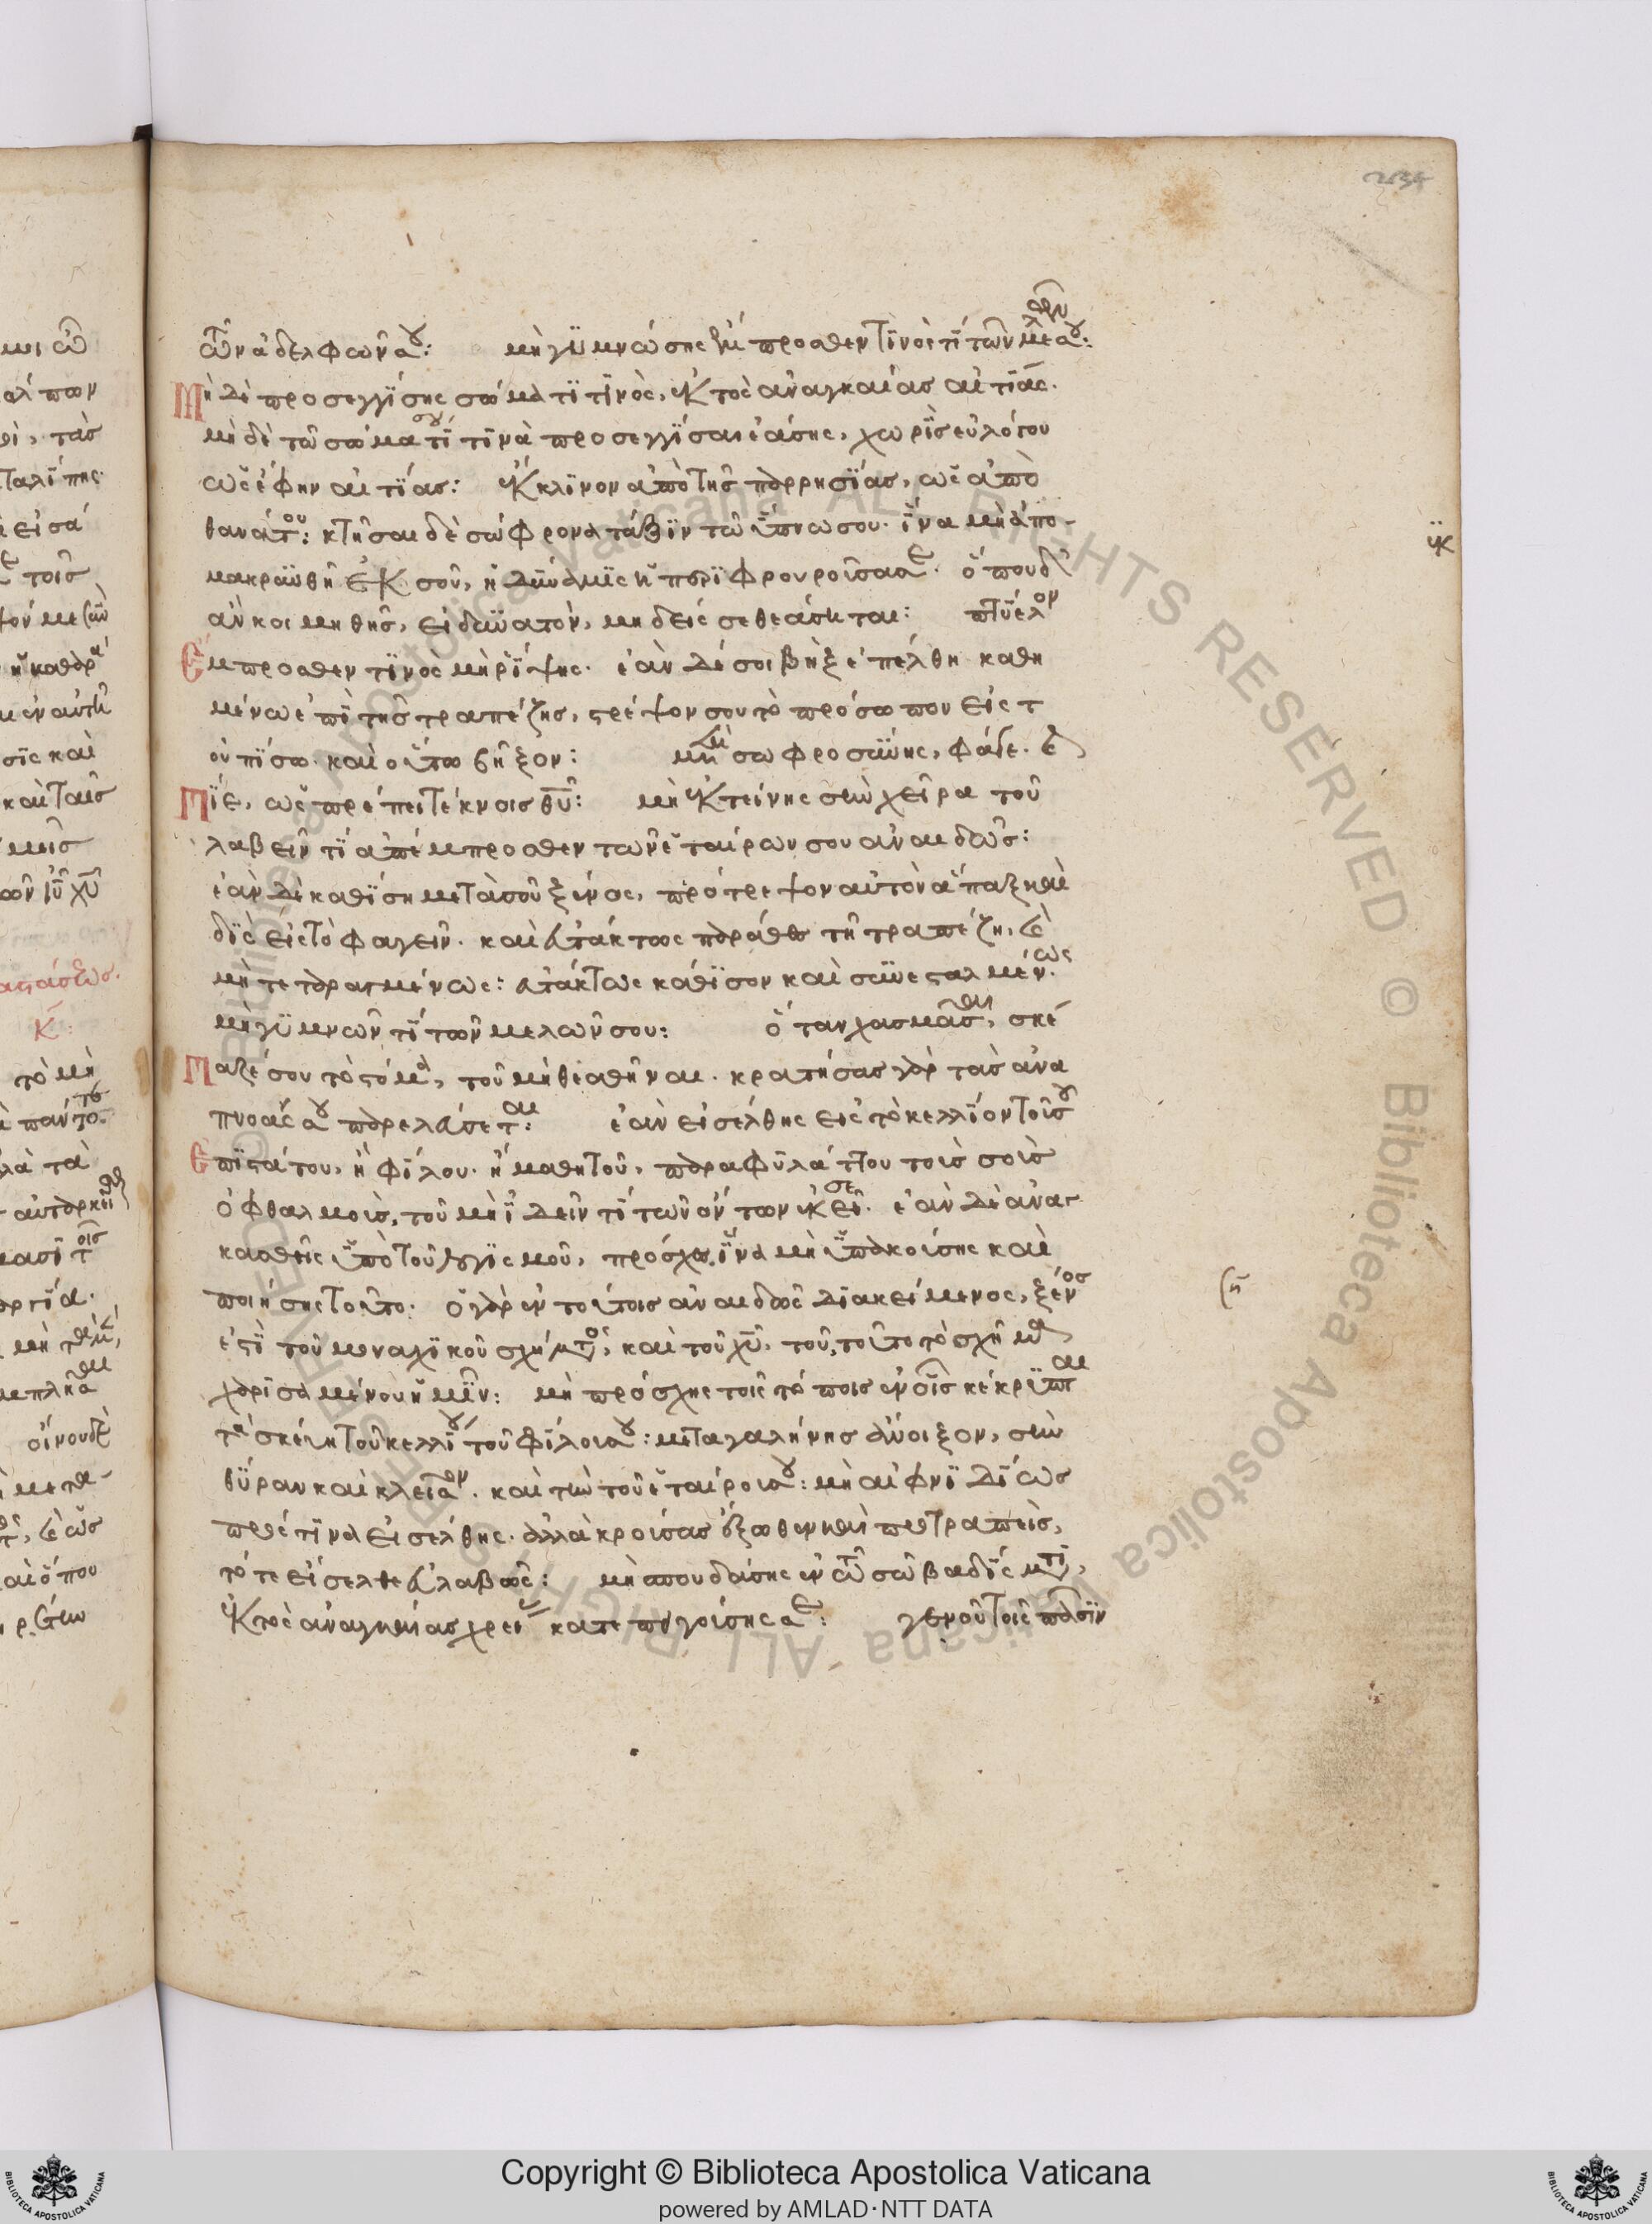 τῶν ἀδελφῶν σου: μὴ γυμνώσης ἔμπροσθεν τινός τι τῶν μελῶν σου:
Μηδὲ προσεγγίσης σώματι τινὸς, ἐκτὸς ἀναγκαίας αἰτίας.
μηδὲ τῶ σώματί σου τινὰ προσεγγίσαι ἐάσης, χωρὶς εὐλόγου
ὡς ἔφην αἰτίας: ἔκκλινον ἀπὸ τῆς παρρησίας, ὡς ἀπὸ
θανάτου: κτῆσαι δὲ σώφρονα τάξιν τῶ ὕπνω σου. ἵνα μὴ ἀπο-
μακρυνθῆ ἐκ σοῦ, ἡ δύναμις ἡ περιφρουροῦσα σε. ὅπου δ
ἂν κοιμηθῆς, εἰ δυνατὸν, μηδείς σε θεάσηται: πτύελον
Ἔμπροσθεν τινὸς μὴ ρίψης. ἐὰν δέ σοι βὴξ ἐπέλθη καθη
μένω ἐπὶ τῆς τραπέζης, στρέψον σου τὸ πρόσωπον εἰς τ
οὐπίσω. καὶ οὕτω βῆξον: μετὰ σωφροσύνης, φάγε. καὶ
Πίε, ὡς πρέπει τέκνοις θυ: μὴ ἐκτείνης σὴν χεῖρα τοῦ
λαβεῖν τί ἀπέμπροσθεν τῶν ἑταίρων σου ἀναιδῶς:
ἐὰν δὲ καθίση μετὰ σοῦ ξένος, πρότρεψον αὐτὸν ἅπαξ καὶ
δὶς εἰς τὸ φαγεῖν. καὶ εὐτάκτως παράθου τῆ τραπέζη, καὶ
μὴ τεταραγμένως: εὐτάκτως κάθισον καὶ συνεσταλμένως.
μὴ γυμνῶν τί τῶν μελῶν σου: ὅταν χασμᾶσθαι, σκέ
Παζέ σου τὸ στόμα, τοῦ μὴ θεαθῆναι. κρατήσας γὰρ τὰς ἀνα
πνοάς σου παρελεύσεται: ἐὰν εἰσέλθης εἰς τὸ κελλίον τοῦ σου
Ἐπιστάτου, ἢ φίλου. ἢ μαθητοῦ, παραφυλάττου τοῖς σοῖς
ὀφθαλμοῖς, τοῦ μὴ ἰδεῖν τί τῶν ὄντων ἐκεῖσε. ἐὰν δὲ ἀναγ-
κασθῆς ὑπὸ τοῦ λογισμοῦ, πρόσχες, ἵνα μὴ ὑπακούσης καὶ
ποιήσης τοῦτο. ὁ γὰρ ἐν τούτοις ἀναιδῶς διακείμενος, ξένος
ἐστὶ τοῦ μοναχικοῦ σχήματος, καὶ τοῦ χυ, τοῦ τοῦτο τὸ σχῆμα
χαρισαμένου ἡμῖν: μὴ πρόσχης τοῖς τόποις ἐν οἷς κέκρυπται
τὰ σκεύη τοῦ κελλίου τοῦ φίλου σου: μετὰ γαλήνης ἄνοιξον, σὴν
θύραν καὶ κλεῖσον. καὶ τὴν τοῦ ἑταίρου σου: μὴ αἰφνιδίως
πρός τινα εἰσέλθης. ἀλλὰ κρούσας ἔξωθεν καὶ προτραπεὶς,
τότε εἴσελθε εὐλαβῶς: μὴ σπουδαίσης ἐν τῶ σῶ βαδίσματι,
ἐκτὸς ἀναγκαίας χρείας κατεπειγούσης σε: γενοῦ τοῖς πᾶσιν